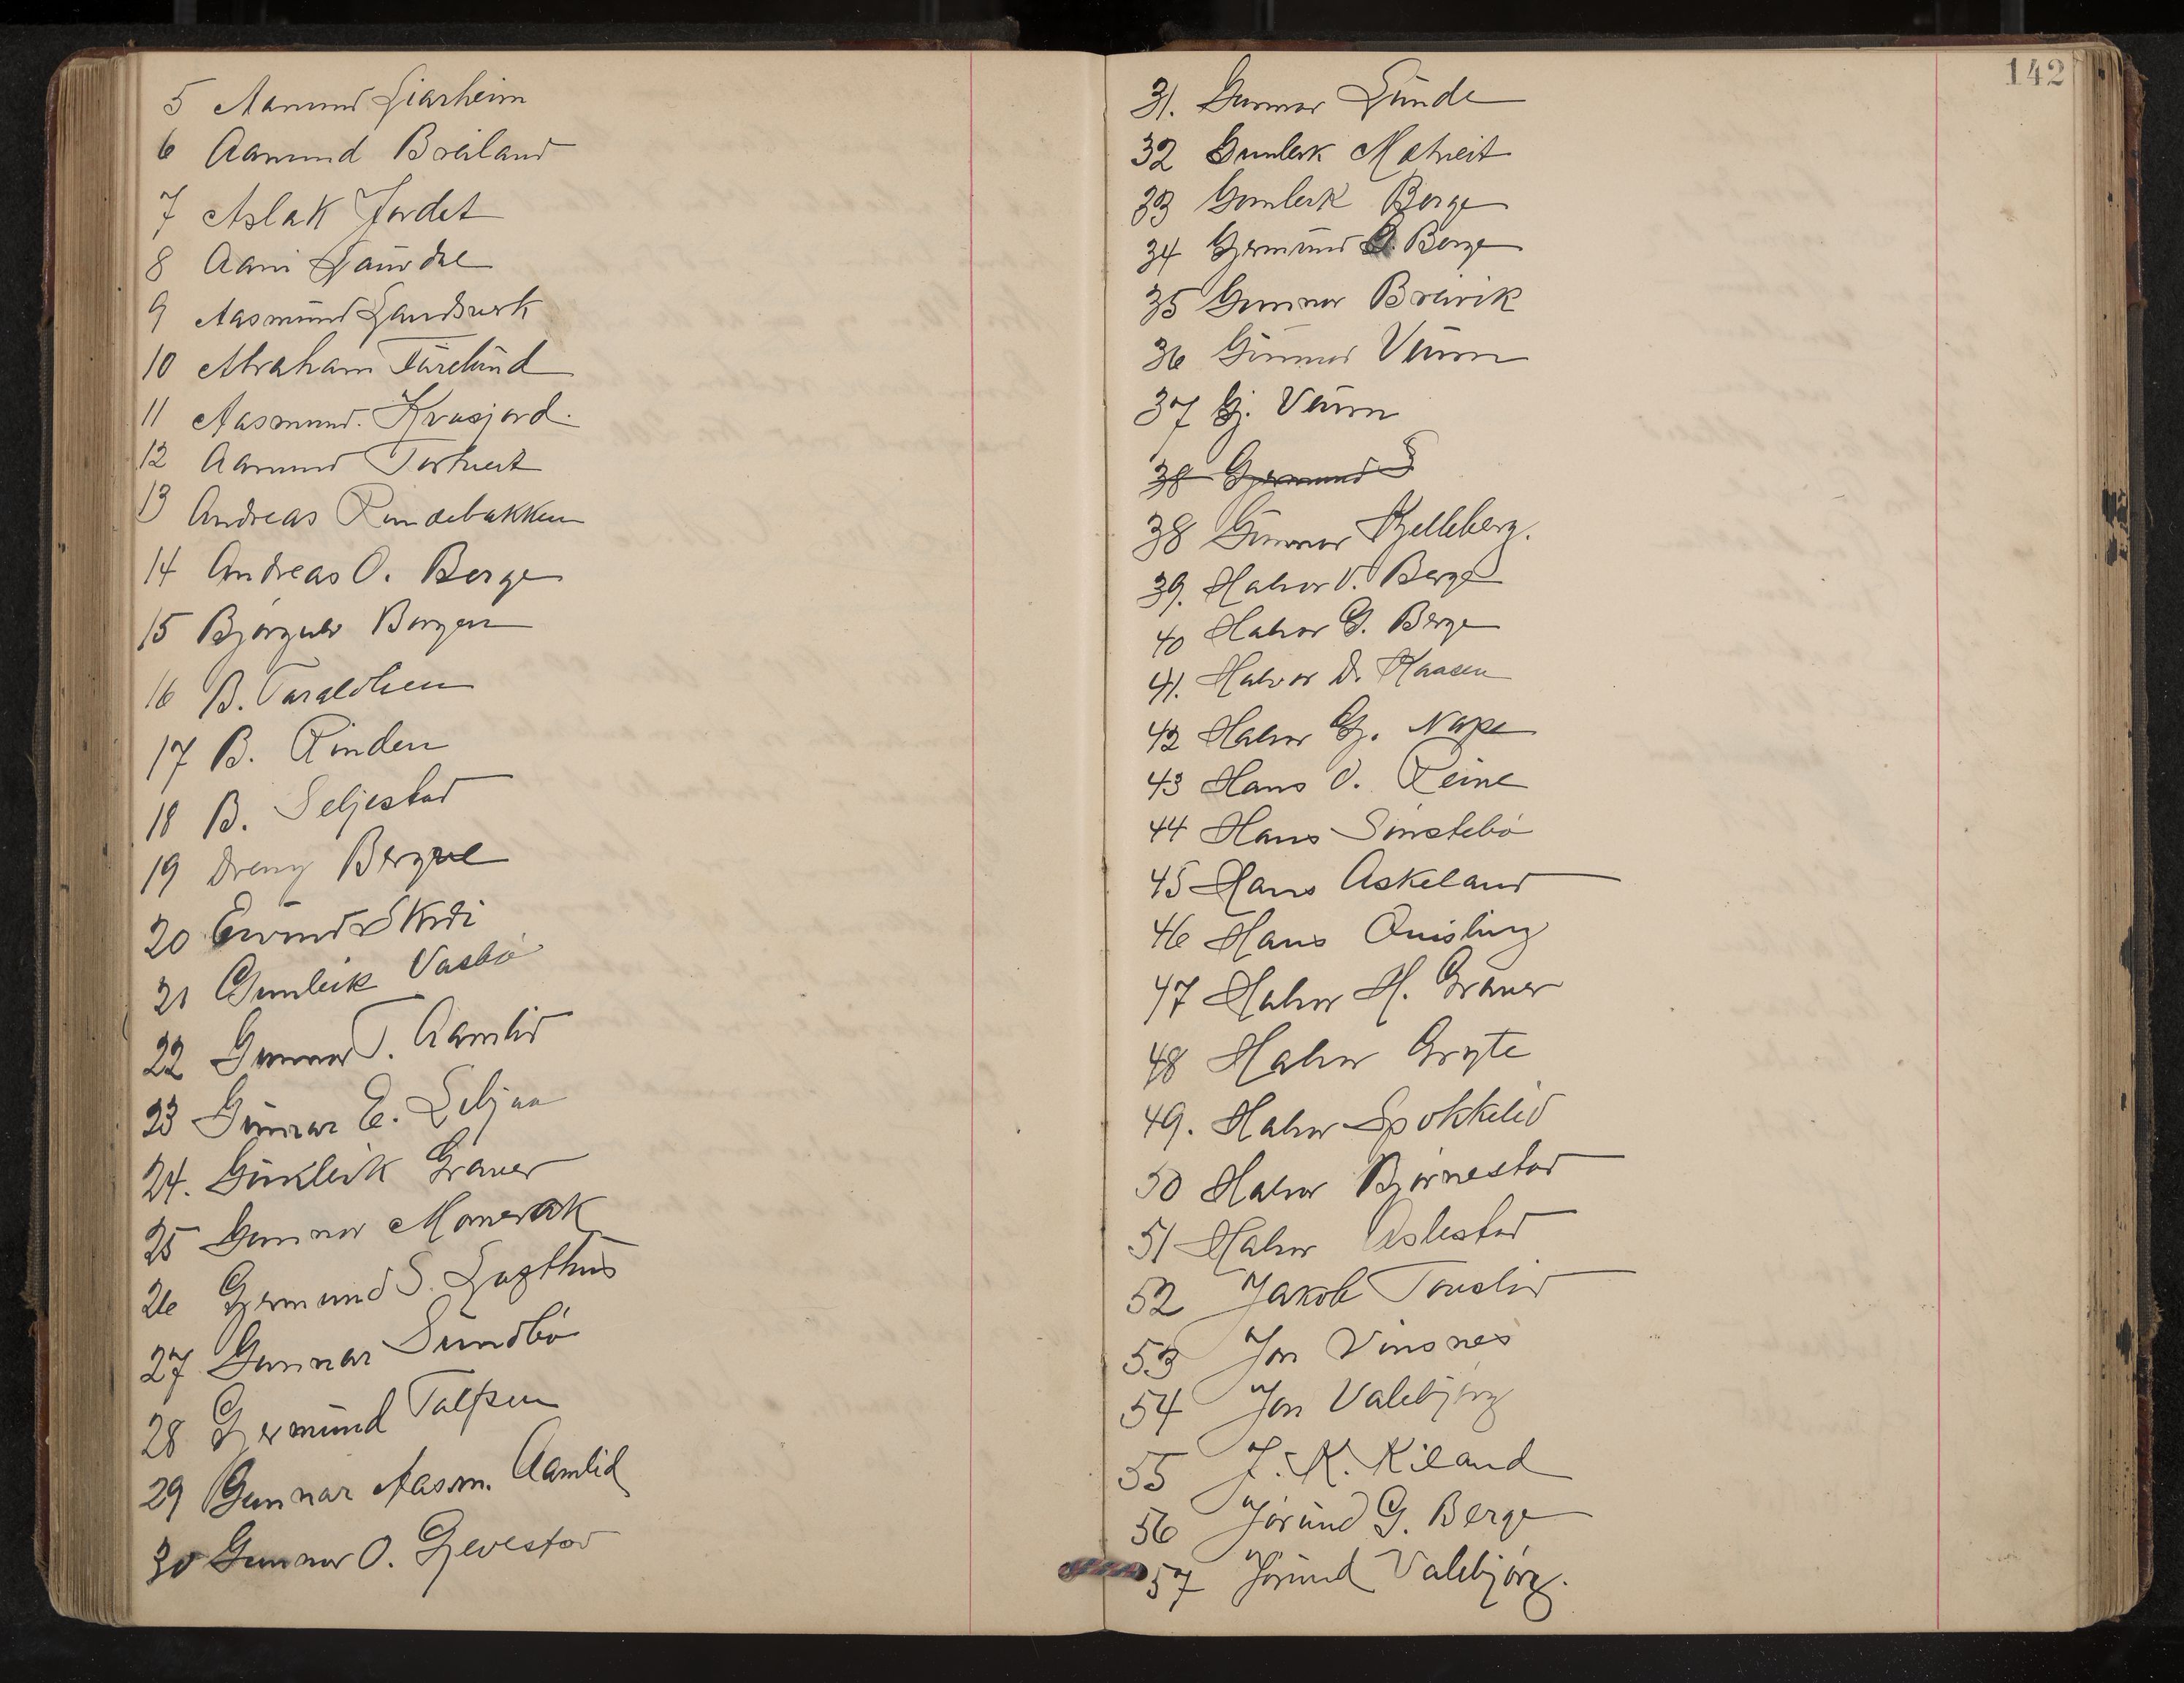 5 Aamund Liarheim
6 Aamund Breiland
7 Aslak Jordet
8 Aani Laurdal
9 Aasmund Landsverk
10 Abraham Turelund
11 Aasmund. Kvasjord.
12 Aamund Tortveit
13 Andreas Rindebakken
14 Andreas O. Berge
15 Bjørgulv Borgen
16 B. Taraldlien
17 B. Rinden
18 B. Seljestad
19 Dreng Berge
20 Eivind Skrdi
21 Gunleik Vasbö
22 Gunnar T. Aamlid
23 Gunnar E. Liljaa
24. Gunleik Graver
25 Gunnar Monerak
26 Gjermund S. Lagthus
27 Gunnar Sundbö
28 Gjermund Talfsen
29 Gunnar Aasm. Aamlid
30 Gunnar O. Gjevestad
142
31. Gunnar Lunde
32 Gunleik Matveit
33 Gunleik Berge
34 Gjermund G. Berge
35 Gunnar Breivik
36 Gunnar Veum
37 Gj. Veum
38 Gjermund S
38 Gunnar Kjelleberg.
39. Halvor O. Berge
40 Halvor G. Berge
41. Halvor D. Kaasen
42 Halvor Gj. Nape
43 Hans O. Reine
44 Hans Sinstebö
45 Hans Askeland
46 Hans Quisling
47 Halvor H. Graver
48 Halvor Gryte
49. Halvor Spokkelid
50 Halvor Bjørnestad
51 Halvor Aslestad
52 Jakob Tonslid
53 Jon Vinsnes
54 Jon Valebjørg
55 J. K. Kiland
56 Jørund G. Berge
57 Jørund Valebjørg.